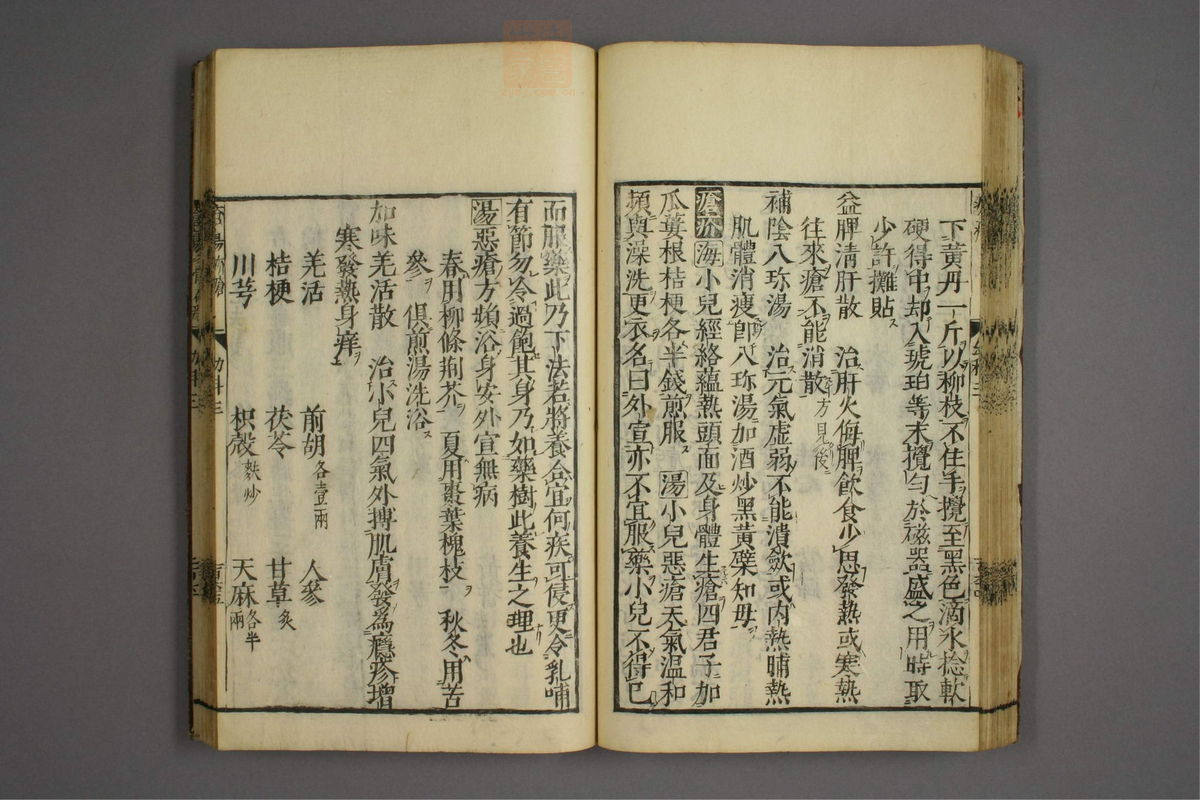 下黃丹一斤以柳枝不住手攪至黑色滴水捻軟
硬得中却入琥珀等末攪勻於磁器盛之用時取
少許攤貼
益脾清肝散 治肝火侮脾飲食少思發熱或寒熱
往來瘡不能消散方見後
補陰八珎湯 治元氣虛弱不能潰歛或內熱晡熱
肌體消瘦卽八珎湯加酒炒黑黃蘗知母
瘡疥海小兒經絡蘊熱頭面及身體生瘡四君子加
瓜蔞根桔梗各半錢煎服 湯小兒惡瘡天氣温和
頻與澡洗更衣名曰外宣亦不宜服藥小兒不得已
而服藥此乃下法若將養合宜何疾可侵更令乳哺
有節勿冷過飽其身乃如藥樹此養生之理也
湯惡瘡方頻浴身安外宣無病
春用柳條荊芥 夏用棗葉槐枝 秋冬用苦
參 俱煎湯洗浴
加味羌活散 治小兒四氣外搏肌膚發爲癮疹增
寒發熱身痒
羌活 前胡各壹兩 人參
桔梗 茯苓 甘草炙
川芎 枳殼麩炒 天麻各半兩
幼科三